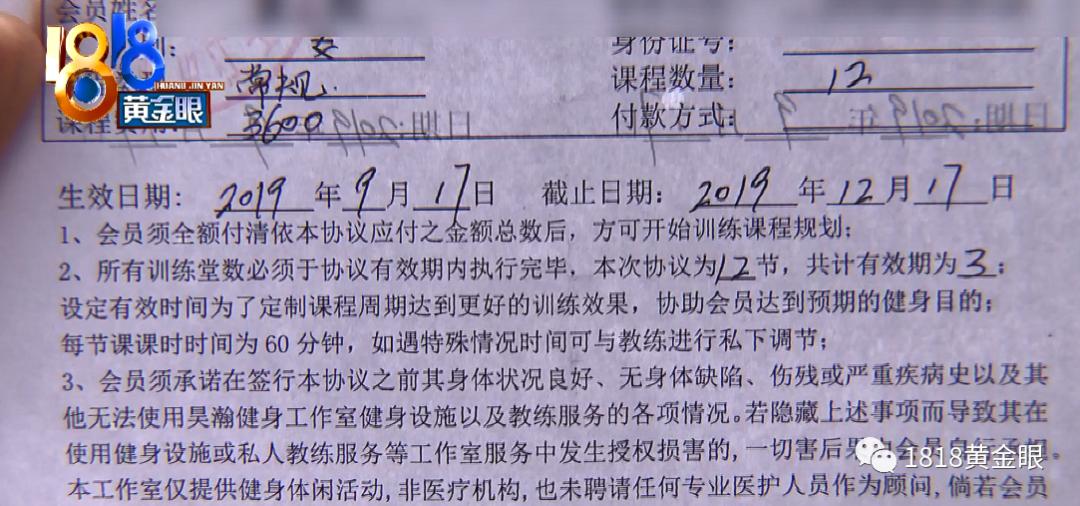 会员姓名
1818
HUANG JIN YAN
黄金眼
别： 女 身份证号：
常规 课程数量： 12
课程费用： 3600 付款方式：
生效日期： 2019 年 9 月 17 日 截止日期： 2019 年 12 月 17 日
1、会员须全额付清依本协议应付之金额总数后，方可开始训练课程规划；
2、所有训练堂数必须于协议有效期内执行完毕，本次协议为12节，共计有效期为3；
设定有效时间为了定制课程周期达到更好的训练效果，协助会员达到预期的健身目的；
每节课课时时间为 60 分钟，如遇特殊情况时间可与教练进行私下调节；
3、会员须承诺在签行本协议之前其身体状况良好、无身体缺陷、伤残或严重疾病史以及其
他无法使用昊瀚健身工作室健身设施以及教练服务的各项情况。若隐藏上述事项而导致其在
使用健身设施或私人教练服务等工作室服务中发生授权损害的，一切害后果由会员自行承担。
1818黄金眼
本工作室仅提供健身体闲活动，非医疗机构，也未聘请任何专业医护人员作为顾问，倘若会员